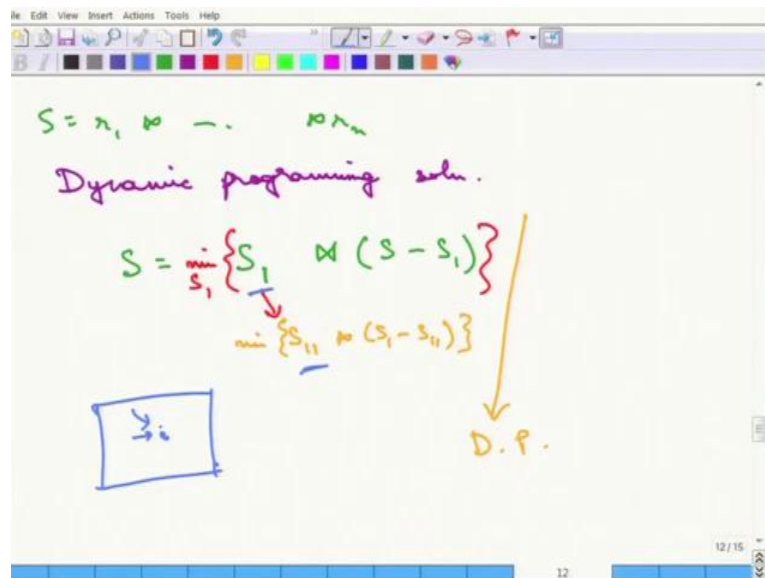 le Edit View Insert Actions Tools Help
S = r₁ ⋈ -. ⋈ rₙ
Dynamic programing soln.
S = min {S₁ ⋈ (S - S₁)}
S₁
min {S₁₁ ⋈ (S₁ - S₁₁)}
i
D.P.
12/15
12